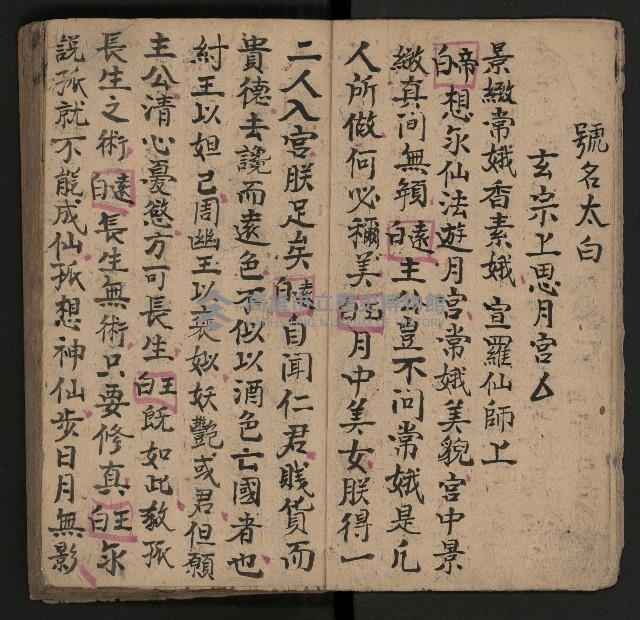 號名太白
玄宗上思月宮厶
景緻常娥香素娥 宣羅仙師上
帝白想永仙法遊月宮常娥美貌宮中景
緻真间無頼遠白主公豈不问常娥是凡
人所做何必稱美王白月中美女朕得一
二人入宮朕足矣遠白自闻仁君賎貨而
貴德去讒而遠色不似以酒色亡國者也
紂王以妲己周幽王以褒姒妖艷或君但願
主公清心憂慾方可長生王白既如此教孤
長生之術遠白長生無術只要修真王白永
說孤就不能成仙孤想神仙步日月無影
高雄市立歷史博物館
KAOHSIUNG MUSEUM OF HISTORY